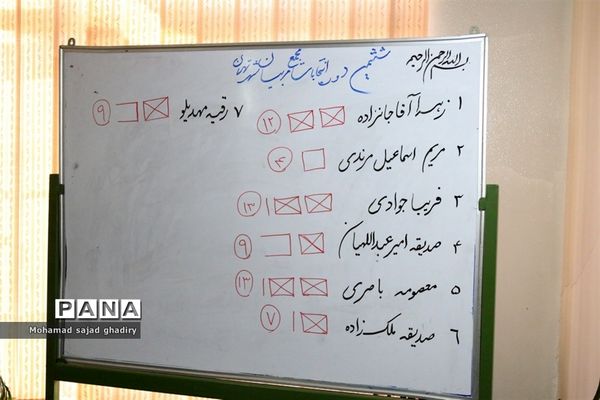 بسم الله الرحمن الرحیم
ششمین دوره انتخابات مجمع مربیان شهر تهران
۱ زهرا آقاجانزاده ۱۲
۲ مریم اسماعیل مرندی ۴
۳ فریبا جوادی ۱۳
۴ صدیقه امیرعبداللهیان ۹
۵ معصومه باصری ۱۳
۶ صدیقه ملک‌زاده ۷
۷ رقیه مهدیلو ۹
PANA
Mohamad sajad ghadiry